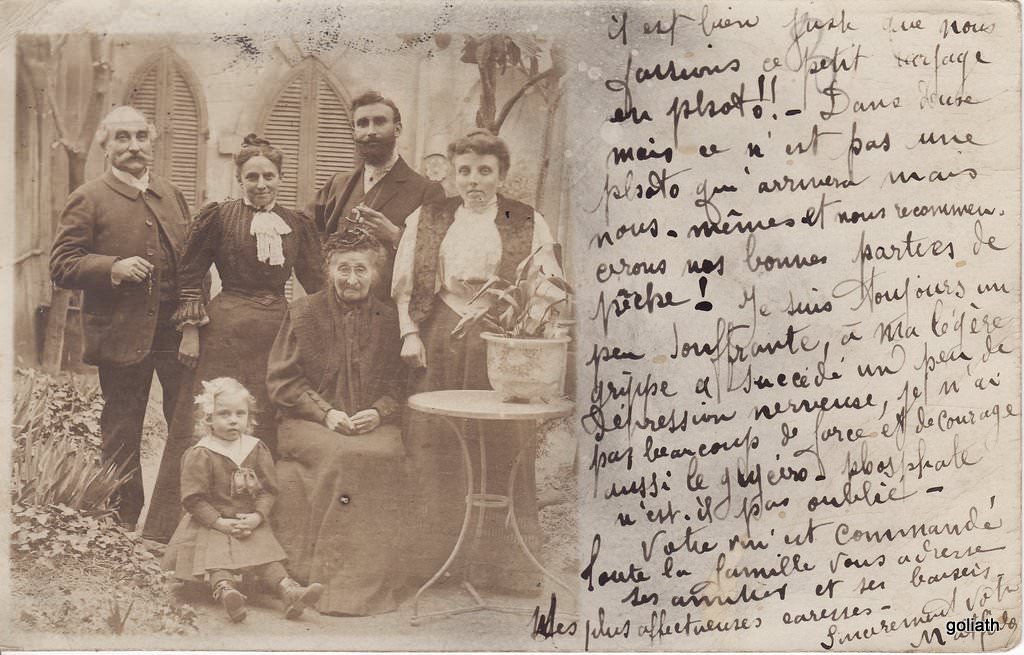 il est bien juste que nous
fassions ce petit voyage
en photo!! - Dans douze
mois ce n'est pas une
photo qui arrivera mais
nous-mêmes et nous recommen-
cerons nos bonnes parties de
pêche! Je suis toujours un
peu souffrante, à ma légère
grippe a succédé un peu de
dépression nerveuse, je n'ai
pas beaucoup de force et de courage
aussi le glycéro-phosphate
n'est-il pas oublié -
Votre vin est commandé
Toute la famille vous adresse
ses amitiés et ses baisers.
Mes plus affectueuses caresses -
Sincèrement votre
Mathilde
goliath